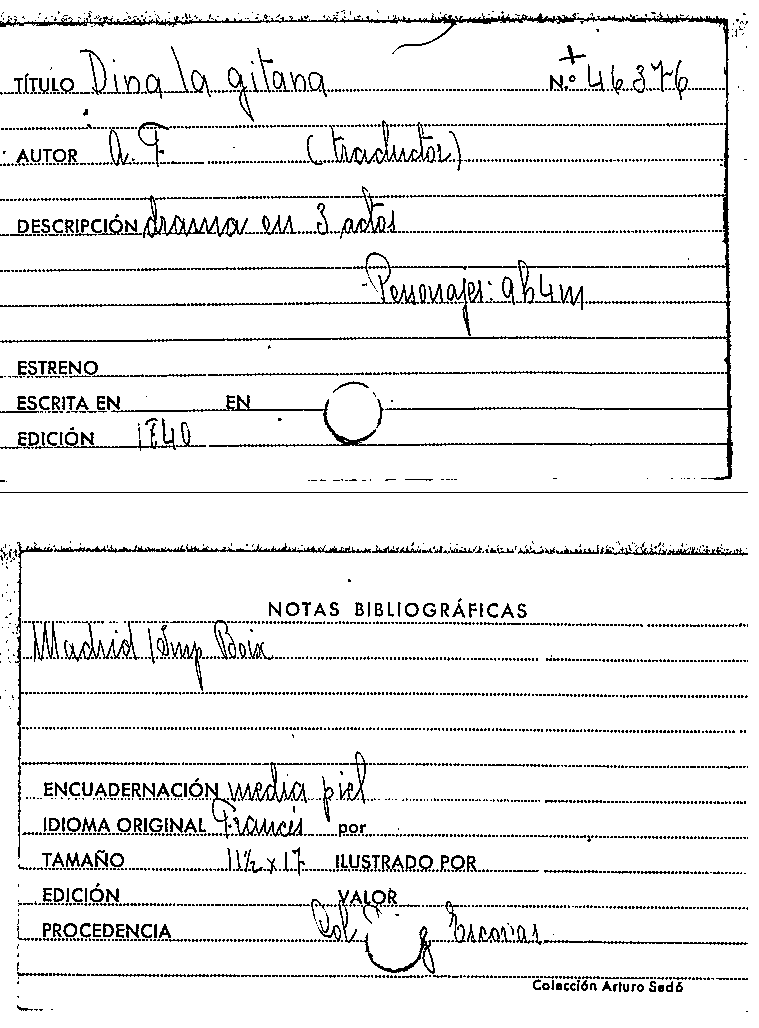 TÍTULO Dina la gitana N.º 46376
AUTOR A. F. (traductor)
DESCRIPCIÓN drama en 3 actos
Personajes: 9h4m
ESTRENO
ESCRITA EN EN
EDICIÓN 1840
NOTAS BIBLIOGRÁFICAS
Madrid Imp Boix
ENCUADERNACIÓN media piel
IDIOMA ORIGINAL Francés por
TAMAÑO 11½ x 17 ILUSTRADO POR
EDICIÓN VALOR
PROCEDENCIA Col Escovar
Colección Arturo Sedó